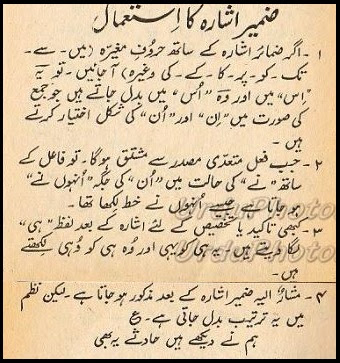 ضمیر اشارہ کا اِستعمال
۱ - اگر ضمائر اشارہ کے ساتھ حروفِ مغیّرہ (میں - سے -
تک - کو - پر - کا - کے - کی وغیرہ) آ جائیں - تو یہ
"اِس" میں اور وہ "اُس" میں بدل جاتے ہیں جو جمع
کی صورت میں "اِن" اور "اُن" کی شکل اختیار کرتے
ہیں -
۲ - جب فعل متعدّی مصدر سے مشتق ہوگا - تو فاعل کے
ساتھ "نے" کی حالت میں "اُن" کی جگہ "اُنہوں نے"
ہو جاتا ہے جیسے اُنہوں نے خط لکھا تھا -
۳ - کبھی تاکید یا تخصیص کے لئے اشارہ کے بعد لفظ "ہی"
لگا دیتے ہیں - یہ ہی کو یہی اور وہ ہی کو وُہی لکھتے
ہیں -
۴ - مشارٌ الیہ ضمیر اشارہ کے بعد مذکور ہو جاتا ہے - لیکن نظم
میں یہ ترتیب بدل جاتی ہے - ع
ہم نے دیکھے ہیں حادثے یہ بھی
UrduPhoto
UrduPhoto